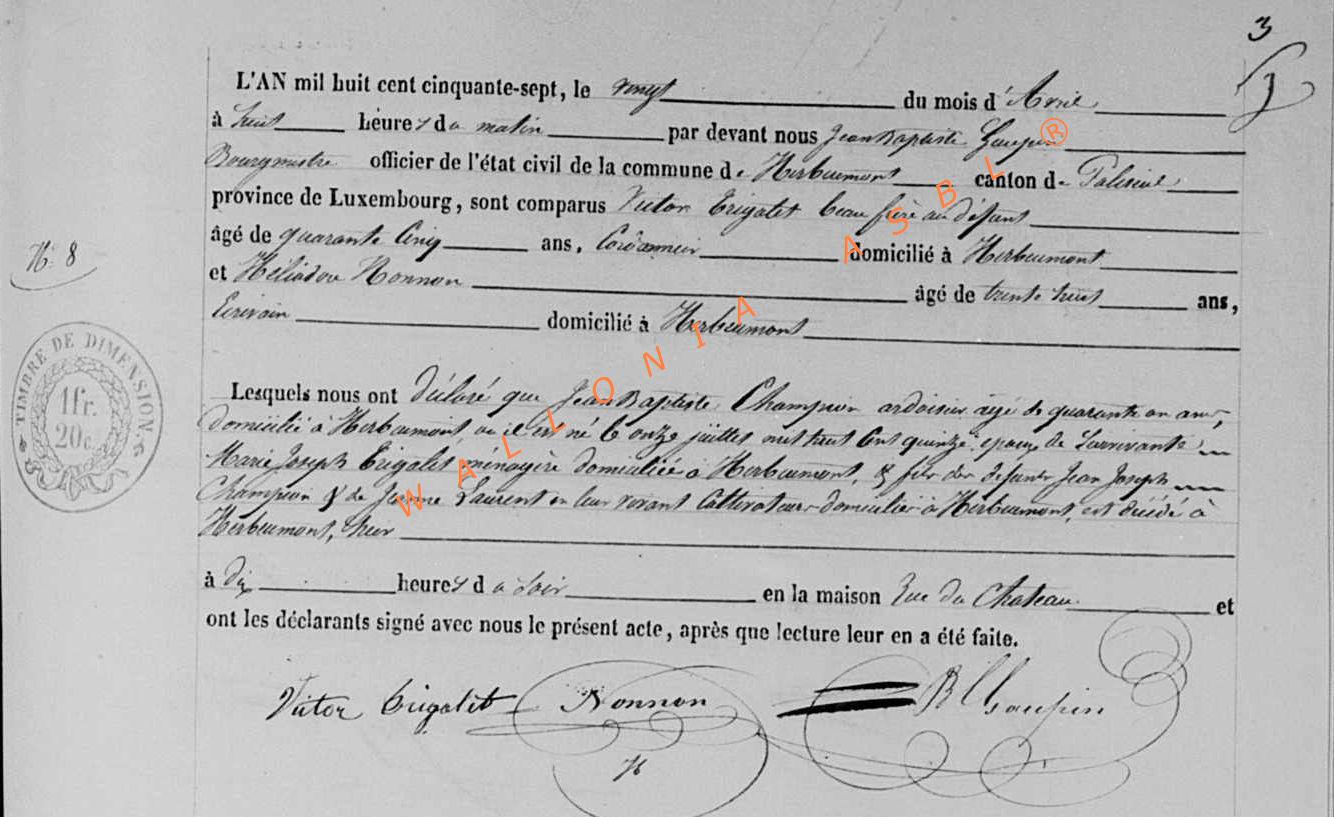 3
L'AN mil huit cent cinquante-sept, le vingt du mois d'Avril
à huit heures du matin par devant nous Jean Baptiste Gaupin
Bourgmestre officier de l'état civil de la commune de Herbeumont canton de Paliseul
province de Luxembourg, sont comparus Victor Trigalet beau frère au défunt
âgé de quarante Cinq ans, Cordonnier domicilié à Herbeumont
N° 8
et Héliodore Nonnon âgé de trente huit ans,
Ecrivain domicilié à Herbeumont
TIMBRE DE DIMENSION.
1fr.
20c.
Lesquels nous ont déclaré que Jean Baptiste Champion ardoisier âgé de quarante un ans,
domicilié à Herbeumont, où il est né le onze juillet mil huit Cent quinze, epoux de Survivante
Marie Joseph Trigalet ménagère domiciliée à Herbeumont, & fils des défunts Jean Joseph
Champion & de Jeanne Laurent en leur vivant Cultivateurs domiciliés à Herbeumont, est décédé à
Herbeumont, hier
à dix heures du soir en la maison Rue du Chateau et
ont les déclarants signé avec nous le présent acte, après que lecture leur en a été faite.
Victor Trigalet Nonnon JB Gaupin
H
WALLONIA ASBL ®